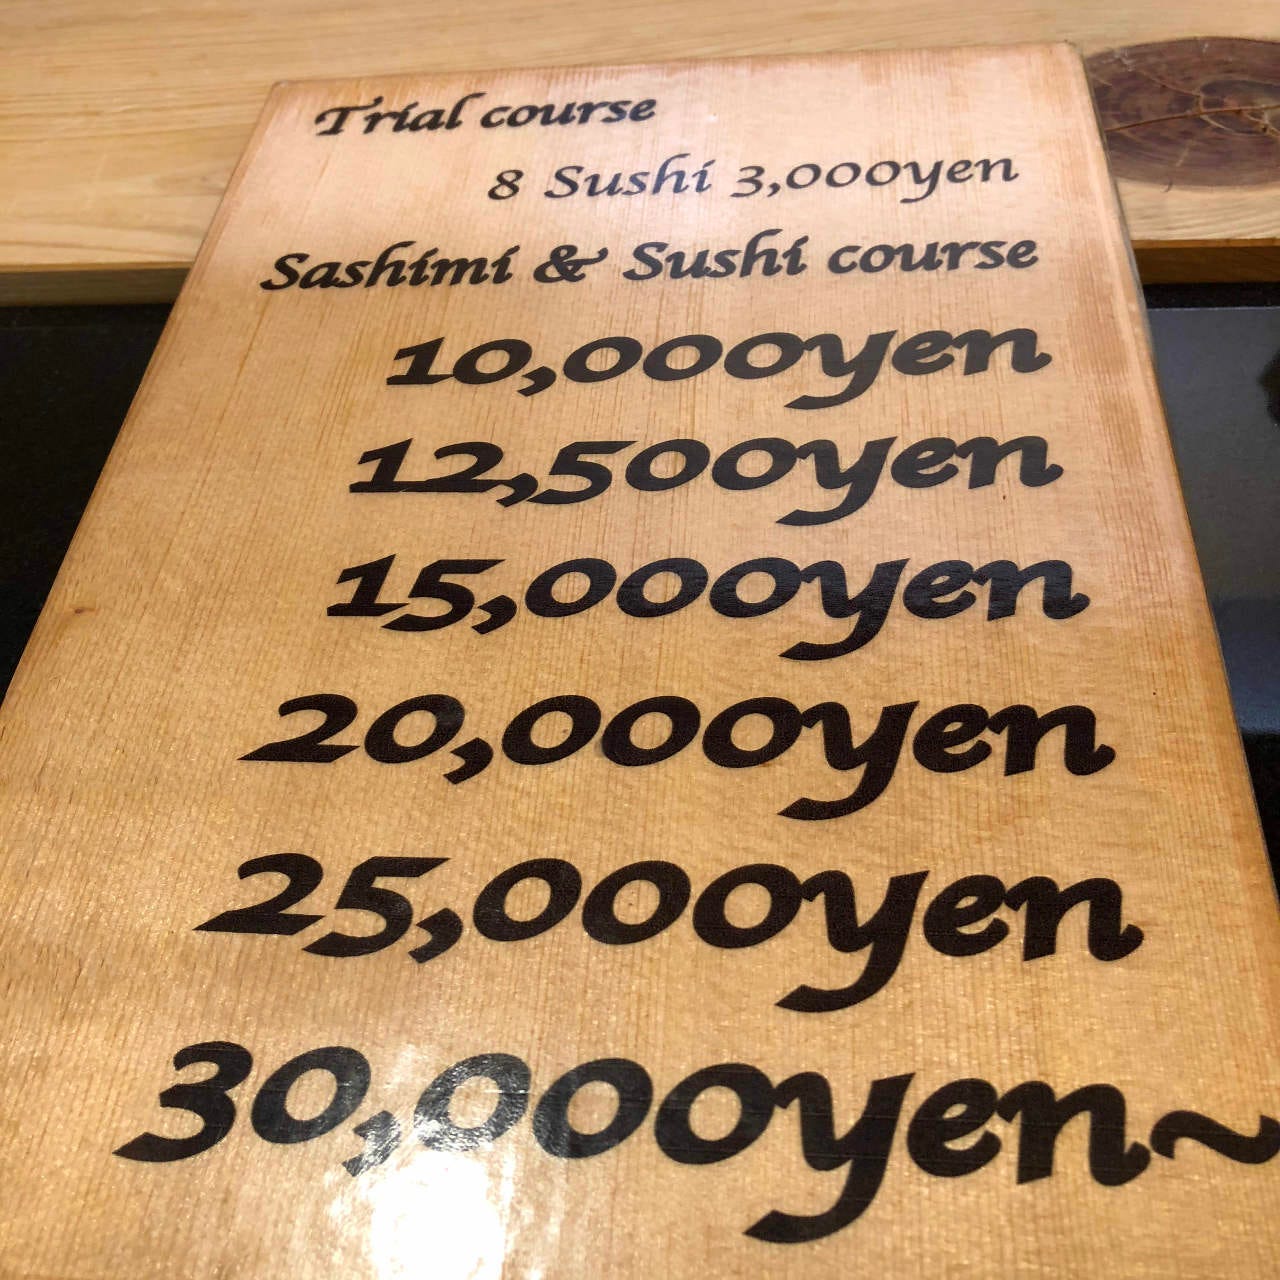 Trial course
8 Sushi 3,000yen
Sashimi & Sushi course
10,000yen
12,500yen
15,000yen
20,000yen
25,000yen
30,000yen~